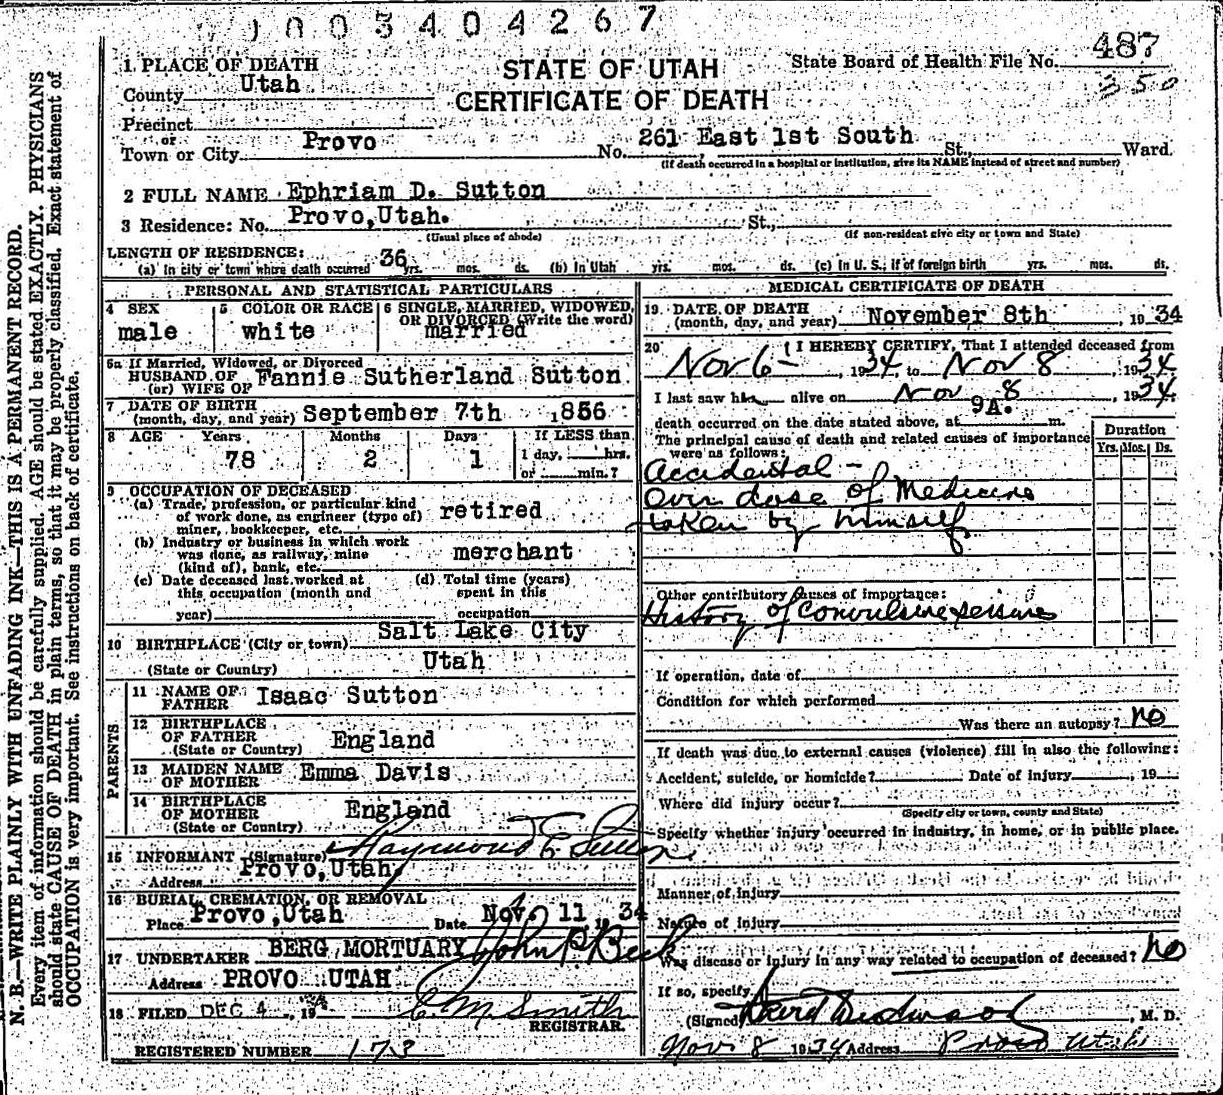 1003404267
1 PLACE OF DEATH
County Utah
STATE OF UTAH
CERTIFICATE OF DEATH
State Board of Health File No. 487
350
Precinct
or
Town or City Provo No. 261 East 1st South St., Ward.
(If death occurred in a hospital or institution, give its NAME instead of street and number)
2 FULL NAME Ephriam D. Sutton
3 Residence: No. Provo, Utah. St.,
(Usual place of abode) (If non-resident give city or town and State)
LENGTH OF RESIDENCE:
(a) In city or town where death occurred 36 yrs. mos. ds. (b) In Utah yrs. mos. ds. (c) In U. S., if of foreign birth yrs. mos. ds.
PERSONAL AND STATISTICAL PARTICULARS
4 SEX
male
5 COLOR OR RACE
white
6 SINGLE, MARRIED, WIDOWED,
OR DIVORCED (Write the word)
married
6a If Married, Widowed, or Divorced
HUSBAND OF
(or) WIFE OF Fannie Sutherland Sutton
7 DATE OF BIRTH
(month, day, and year) September 7th 1856
8 AGE Years Months Days If LESS than
78 2 1 1 day, hrs.
or min.?
9 OCCUPATION OF DECEASED
(a) Trade, profession, or particular kind
of work done, as engineer (type of)
miner, bookkeeper, etc. retired
(b) Industry or business in which work
was done, as railway, mine
(kind of), bank, etc. merchant
(c) Date deceased last worked at
this occupation (month and
year)
(d) Total time (years)
spent in this
occupation
10 BIRTHPLACE (City or town) Salt Lake City
(State or Country) Utah
PARENTS
11 NAME OF
FATHER Isaac Sutton
12 BIRTHPLACE
OF FATHER
(State or Country) England
13 MAIDEN NAME
OF MOTHER Emma Davis
14 BIRTHPLACE
OF MOTHER
(State or Country) England
15 INFORMANT (Signature) Raymond E Sutton
Address Provo, Utah
16 BURIAL, CREMATION, OR REMOVAL
Place Provo, Utah Date Nov. 11, 1934
17 UNDERTAKER BERG MORTUARY John P Beck
Address PROVO UTAH
18 FILED DEC 4, 1934 C M Smith
REGISTRAR.
REGISTERED NUMBER 173
MEDICAL CERTIFICATE OF DEATH
19 DATE OF DEATH
(month, day, and year) November 8th, 1934
20 I HEREBY CERTIFY, That I attended deceased from
Nov 6 - , 1934, to Nov 8, 1934.
I last saw him alive on Nov 8, 1934,
death occurred on the date stated above, at 9A. m.
The principal cause of death and related causes of importance
were as follows:
Duration
Yrs. Mos. Ds.
Accidental -
Over dose of Medicine
taken by himself
Other contributory causes of importance:
History of convulsive seisures
If operation, date of
Condition for which performed
Was there an autopsy? no
If death was due to external causes (violence) fill in also the following:
Accident, suicide, or homicide? Date of injury , 19
Where did injury occur?
(Specify city or town, county and State)
Specify whether injury occurred in industry, in home, or in public place.
Manner of injury
Nature of injury
Was disease or injury in any way related to occupation of deceased? No
If so, specify
(Signed) , M. D.
Nov 8 1934 Address Provo Utah
N. B.—WRITE PLAINLY WITH UNFADING INK—THIS IS A PERMANENT RECORD.
Every item of information should be carefully supplied. AGE should be stated EXACTLY. PHYSICIANS
should state CAUSE OF DEATH in plain terms, so that it may be properly classified. Exact statement of
OCCUPATION is very important. See instructions on back of certificate.